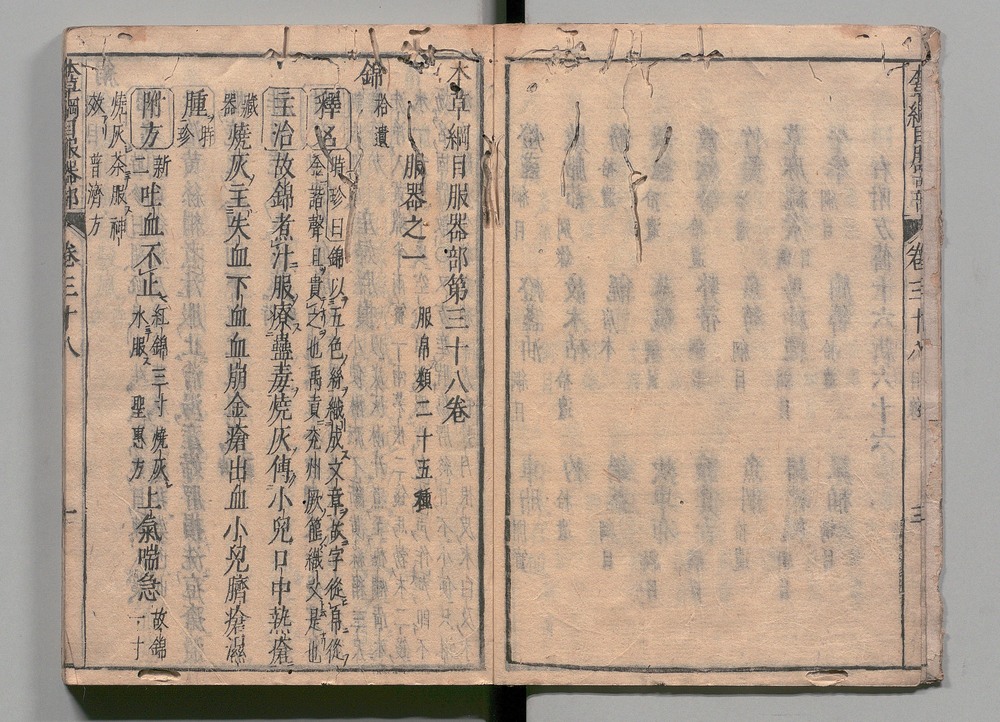 本草綱目服器部第三十八卷
服器之一 服帛類二十五種
錦 拾遺
釋名 時珍曰錦以五色絲織成文章故字從帛從
金諧聲且貴之也禹貢兗州厥篚織文是也
主治 故錦煮汁服療蠱毒燒灰傅小兒口中熱瘡
藏器 燒灰主失血下血血崩金瘡出血小兒臍瘡濕
腫 時珍
附方 新二 吐血不止 紅錦三寸燒灰水服 聖惠方 上氣喘急 故錦一寸
燒灰茶服神
效 普濟方
本草綱目服器部 卷三十八 一
本草綱目服器部 卷三十八 三